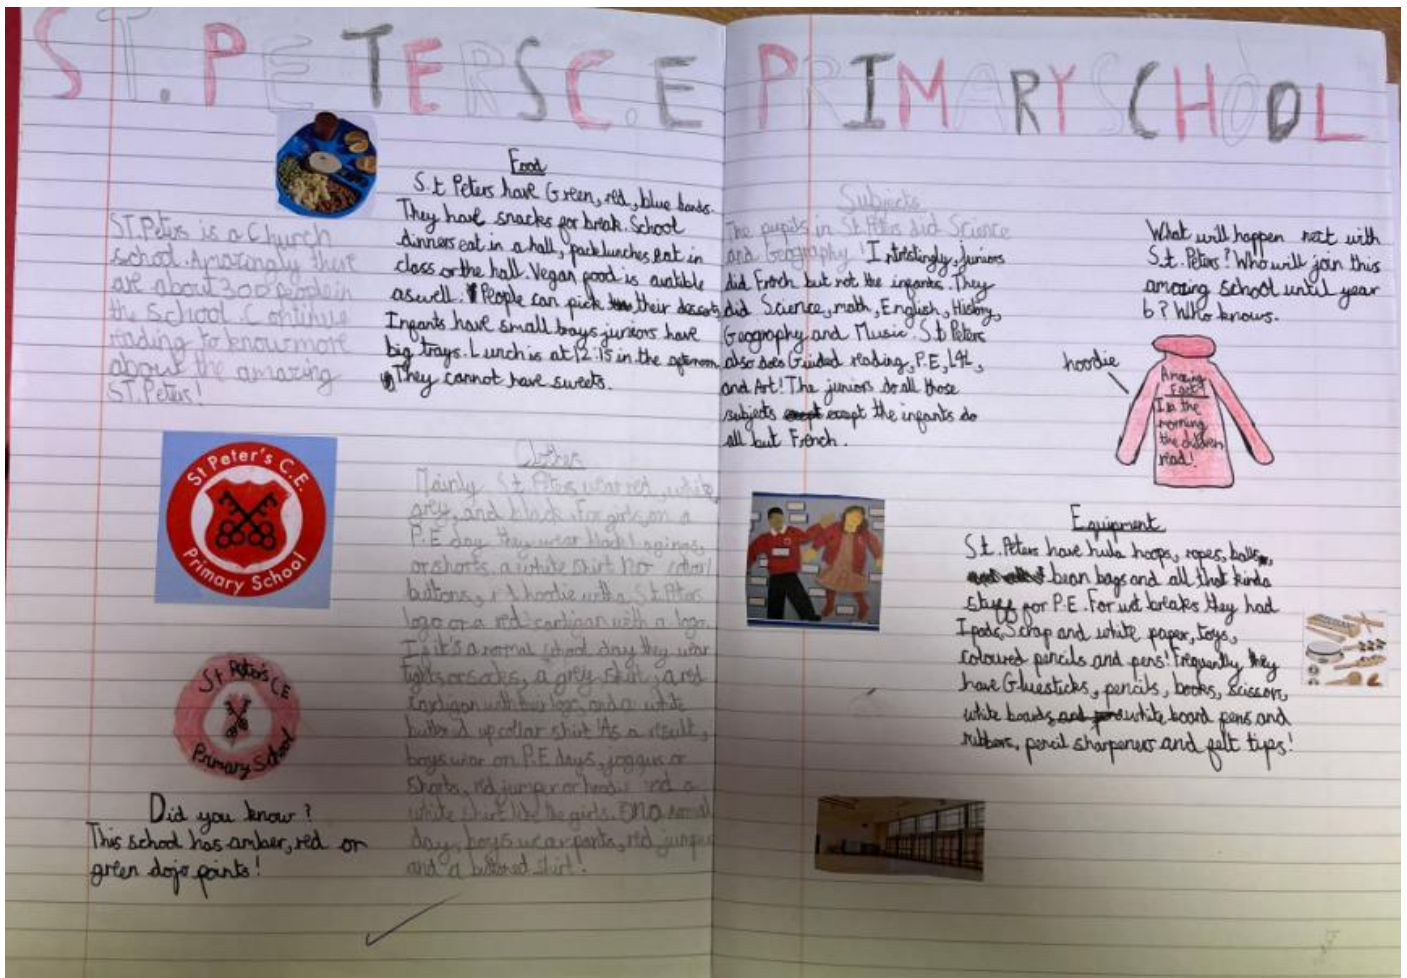 ST. PETERS C.E PRIMARY SCHOOL
ST. Peters is a Church
school. Amazingly there
are about 300 people in
the School. Continue
reading to know more
about the amazing
ST. Peters!
Food
S.t Peters have Green, red, blue bands.
They have snacks for break. School
dinners eat in a hall, packlunches eat in
class or the hall. Vegan food is avatible
aswell. People can pick their desserts
Infants have small trays juniors have
big trays. Lunch is at 12:15 in the afternoon
They cannot have sweets.
St Peter's C.E.
Primary School
St Peter's C.E
Primary School
Did you know?
This school has amber, red or
green dojo points!
Clothes
Mainly St. Peters wear red, white,
grey, and black. For girls, on a
P.E day they wear black leggings,
or shorts, a white shirt no
buttons, red hoodie with a St. Peters
logo or a red cardigan with a logo.
If it's a normal school day they wear
tights or socks, a grey skirt, a red
cardigan with logo, and a white
buttoned up collar shirt. As a result,
boys wear on P.E days, joggers or
shorts, red jumper or hoodie and a
white shirt like the girls. On a normal
day, boys wear pants, red jumper
and a buttoned shirt!
Subjects
The pupils in St Peters did Science
and Geography! Intrestingly, juniors
did French but not the infants. They
did Science, math, English, History,
Geography and Music. S.t Peters
also does Guided reading, P.E,
and Art! The juniors do all those
subjects except the infants do
all but French.
What will happen next with
S.t. Peters? Who will join this
amazing school until year
6? Who knows.
hoodie
Amazing
Fact!
In the
morning
the children
read!
Equipment
S.t. Peters have hula hoops, ropes, balls,
bean bags and all that kinda
stuff for P.E. For wet breaks they had
Ipads, Scrap and white paper, toys,
coloured pencils and pens! Frequently they
have Gluesticks, pencils, books, scissors,
white boards, white board pens and
rubbers, pencil sharpeners and felt tips!